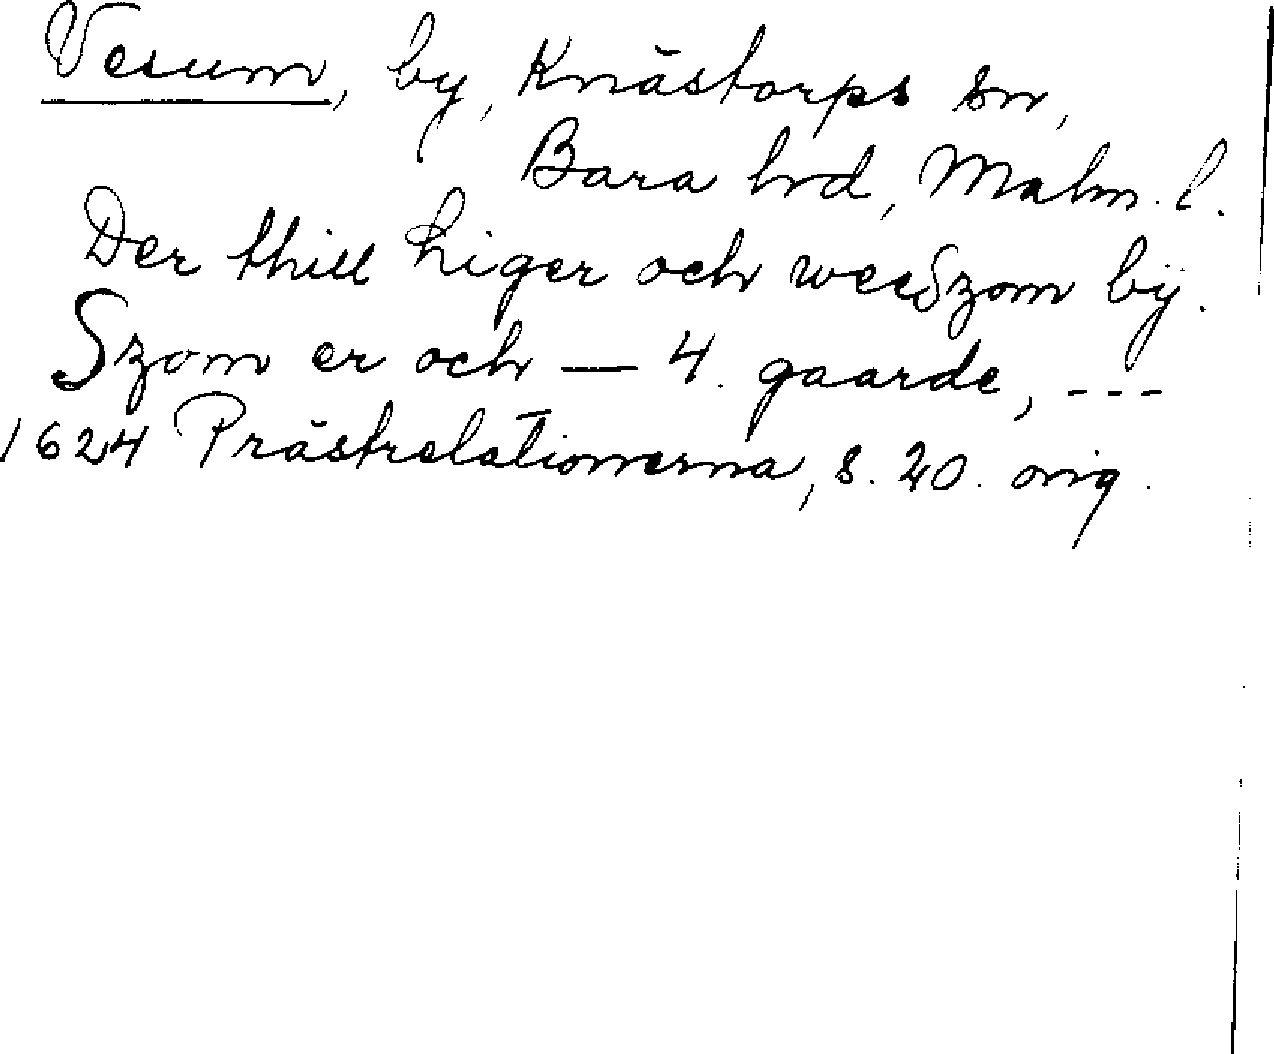 Vesum, by, Knästorps sn,
Bara hd, Malm. l.
Der thill liger och weeszom bÿ.
Szom er och — 4. gaarde, ---
1624 Prästrelationerna, s. 20. orig.